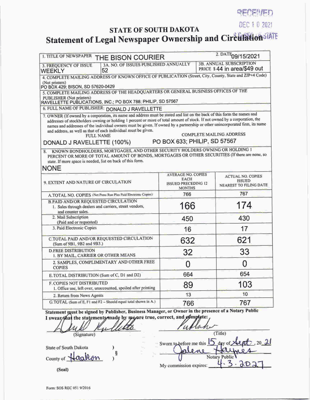 RECEIVED
DEC 10 2021
STATE OF SOUTH DAKOTA
Statement of Legal Newspaper Ownership and Circulation
1. TITLE OF NEWSPAPER THE BISON COURIER
2. DATE 09/15/2021
3. FREQUENCY OF ISSUE WEEKLY
3A. NO. OF ISSUES PUBLISHED ANNUALLY 52
3B. ANNUAL SUBSCRIPTION PRICE $44 in area/$49 out
4. COMPLETE MAILING ADDRESS OF KNOWN OFFICE OF PUBLICATION (Street, City, County, State and ZIP+4 Code)
(Not printers)
PO BOX 429; BISON, SD 57620-0429
5. COMPLETE MAILING ADDRESS OF THE HEADQUARTERS OR GENERAL BUSINESS OFFICES OF THE
PUBLISHER (Not printers)
RAVELLETTE PUBLICATIONS, INC.; PO BOX 788; PHILIP, SD 57567
6. FULL NAME OF PUBLISHER: DONALD J RAVELLETTE
7. OWNER (If owned by a corporation, its name and address must be stated and list on the back of this form the names and
addresses of stockholders owning or holding 1 percent or more of total amount of stock. If not owned by a corporation, the
names and addresses of the individual owners must be given. If owned by a partnership or other unincorporated firm, its name
and address, as well as that of each individual must be given.
FULL NAME COMPLETE MAILING ADDRESS
DONALD J RAVELLETTE (100%) PO BOX 633; PHILIP, SD 57567
8. KNOWN BONDHOLDERS, MORTGAGES, AND OTHER SECURITY HOLDERS OWNING OR HOLDING 1
PERCENT OR MORE OF TOTAL AMOUNT OF BONDS, MORTGAGES OR OTHER SECURITIES (If there are none, so
state. If more space is needed, list on back of this form.
NONE
9. EXTENT AND NATURE OF CIRCULATION
AVERAGE NO. COPIES EACH ISSUED PRECEDING 12 MONTHS
ACTUAL NO. COPIES ISSUED NEAREST TO FILING DATE
A. TOTAL NO. COPIES (Net Press Run Plus Paid Electronic Copies) 766 767
B. PAID AND/OR REQUESTED CIRCULATION
1. Sales through dealers and carriers, street vendors,
and counter sales. 166 174
2. Mail Subscription
(Paid and or requested) 450 430
3. Paid Electronic Copies 16 17
C. TOTAL PAID AND/OR REQUESTED CIRCULATION
(Sum of 9B1, 9B2 and 9B3.) 632 621
D. FREE DISTRIBUTION
1. BY MAIL, CARRIER OR OTHER MEANS 32 33
2. SAMPLES, COMPLIMENTARY AND OTHER FREE
COPIES 0 0
E. TOTAL DISTRIBUTION (Sum of C, D1 and D2) 664 654
F. COPIES NOT DISTRIBUTED
1. Office use, left over, unaccounted, spoiled after printing 89 103
2. Return from News Agents 13 10
G. TOTAL (Sum of E, F1 and F2 - Should equal total shown in A.) 766 767
Statement must be signed by Publisher, Business Manager, or Owner in the presence of a Notary Public
I swear that the statements made by me are true, correct, and complete:
Publisher
(Signature) (Title)
State of South Dakota )
County of Haakon )
§
(Seal)
Sworn to before me this 15 day of Sept, 20 21
Notary Public
My commission expires: 4-3-2027